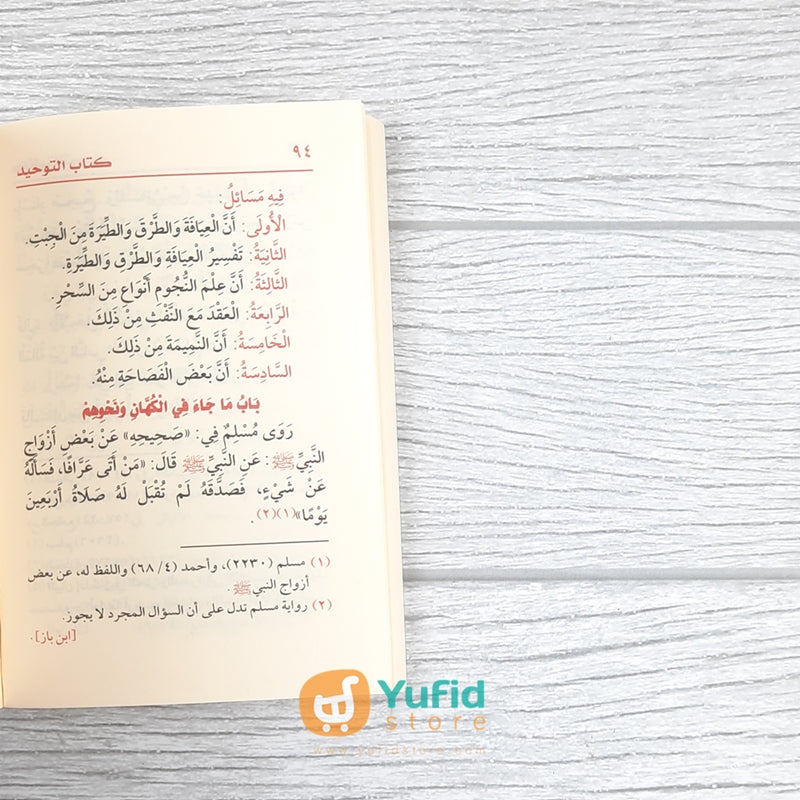 ٩٤
كتاب التوحيد
فِيهِ مَسَائِلُ:
الْأُولَى: أَنَّ الْعِيَافَةَ وَالطَّرْقَ وَالطِّيَرَةَ مِنَ الْجِبْتِ.
الثَّانِيَةُ: تَفْسِيرُ الْعِيَافَةِ وَالطَّرْقِ وَالطِّيَرَةِ.
الثَّالِثَةُ: أَنَّ عِلْمَ النُّجُومِ أَنْوَاعٍ مِنَ السِّحْرِ.
الرَّابِعَةُ: الْعَقْدَ مَعَ النَّفْثِ مِنْ ذَلِكَ.
الْخَامِسَةُ: أَنَّ النَّمِيمَةَ مِنْ ذَلِكَ.
السَّادِسَةُ: أَنَّ بَعْضَ الْفَصَاحَةِ مِنْهُ.
بَابُ مَا جَاءَ فِي الْكُهَّانِ وَنَحْوِهِمْ
رَوَى مُسْلِمٌ فِي: «صَحِيحِهِ» عَنْ بَعْضِ أَزْوَاجِ
النَّبِيِّ ﷺ: عَنِ النَّبِيِّ ﷺ قَالَ: «مَنْ أَتَى عَرَّافًا، فَسَأَلَهُ
عَنْ شَيْءٍ، فَصَدَّقَهُ لَمْ تُقْبَلْ لَهُ صَلَاةُ أَرْبَعِينَ
يَوْمًا»(١)(٢).
(١) مسلم (٢٢٣٠)، وأحمد (٤/ ٦٨) واللفظ له، عن بعض
أزواج النبي ﷺ.
(٢) رواية مسلم تدل على أن السؤال المجرد لا يجوز.
[ابن باز].
Yufid
store
www.yufidstore.com